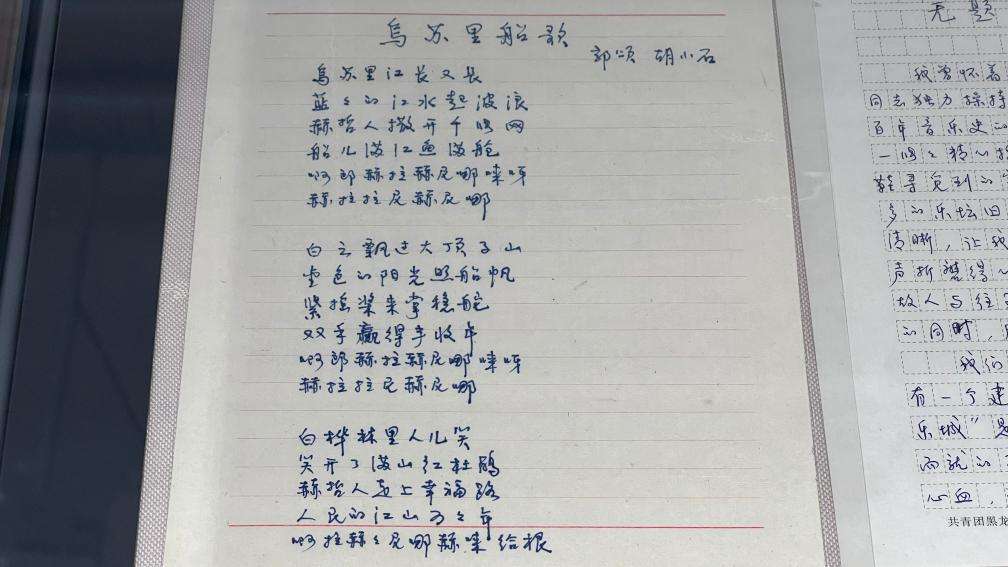 乌苏里船歌
郭颂 胡小石
乌苏里江长又长
蓝々的江水起波浪
赫哲人撒开千张网
船儿满江鱼满舱
啊郎赫拉赫尼哪咪呀
赫拉拉尼赫尼哪
白云飘过大顶子山
金色的阳光照船帆
紧摇桨来掌稳舵
双手赢得丰收年
啊郎赫拉赫尼哪咪呀
赫拉拉尼赫尼哪
白桦林里人儿笑
笑开了满山红杜鹃
赫哲人走上幸福路
人民的江山万々年
啊拉赫々尼哪赫咪给根
无题
我曾怀着
同志独力操持
百年音乐史的
一张々精心
鞋寻觅到的
多的乐坛旧
清晰，让我
声折
故人与往
的同时，
我们
有一个建
乐城”是
而就的
心血，
共青团黑龙